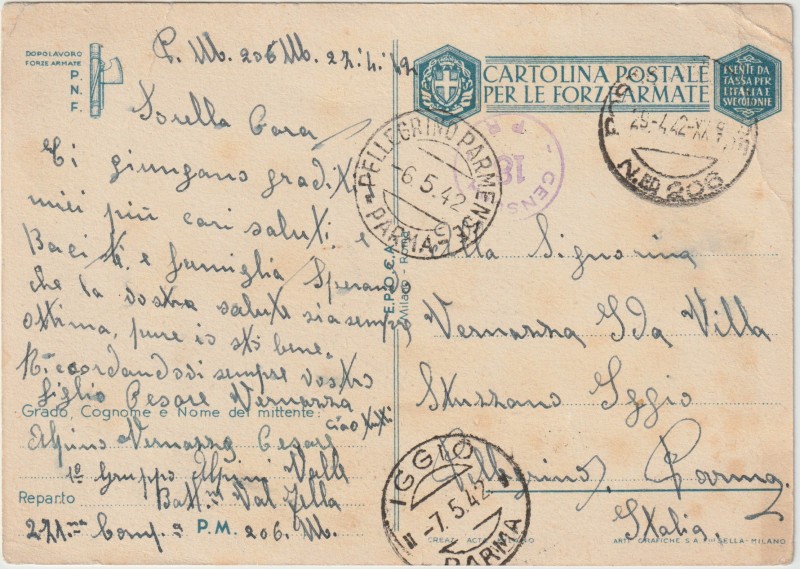 DOPOLAVORO
FORZE ARMATE
P.
N.
F.
P. M. 206 M. 27.4.42
Sorella Cara
Ti giungano graditi
miei più cari saluti e
Baci ti e famiglia Sperando
che la vostra salute sia sempre
ottima, pure io sto bene.
Ricordandovi sempre vostro
figlio Cesare Vernazza
ciao tutti
Grado, Cognome e Nome del mittente:
Alpino Vernazza Cesare
1º Gruppo Alpini Valle
Reparto Batt.ne Val
271.ma Comp.a P.M. 206. M.
CARTOLINA POSTALE
PER LE FORZE ARMATE
ESENTE DA
TASSA PER
L'ITALIA E
SVE COLONIE
PELLEGRINO PARMENSE
-6.5.42
PARMA
CENS
N. 206
E.P.O.C.A.
Milano - Roma
Alla Signorina
Vernazza Ida Villa
Stuzzano Iggio
Pellegrino, Parma
Italia.
IGGIO
-7.5.42
PARMA
ARTI GRAFICHE S.A. PISELLA - MILANO